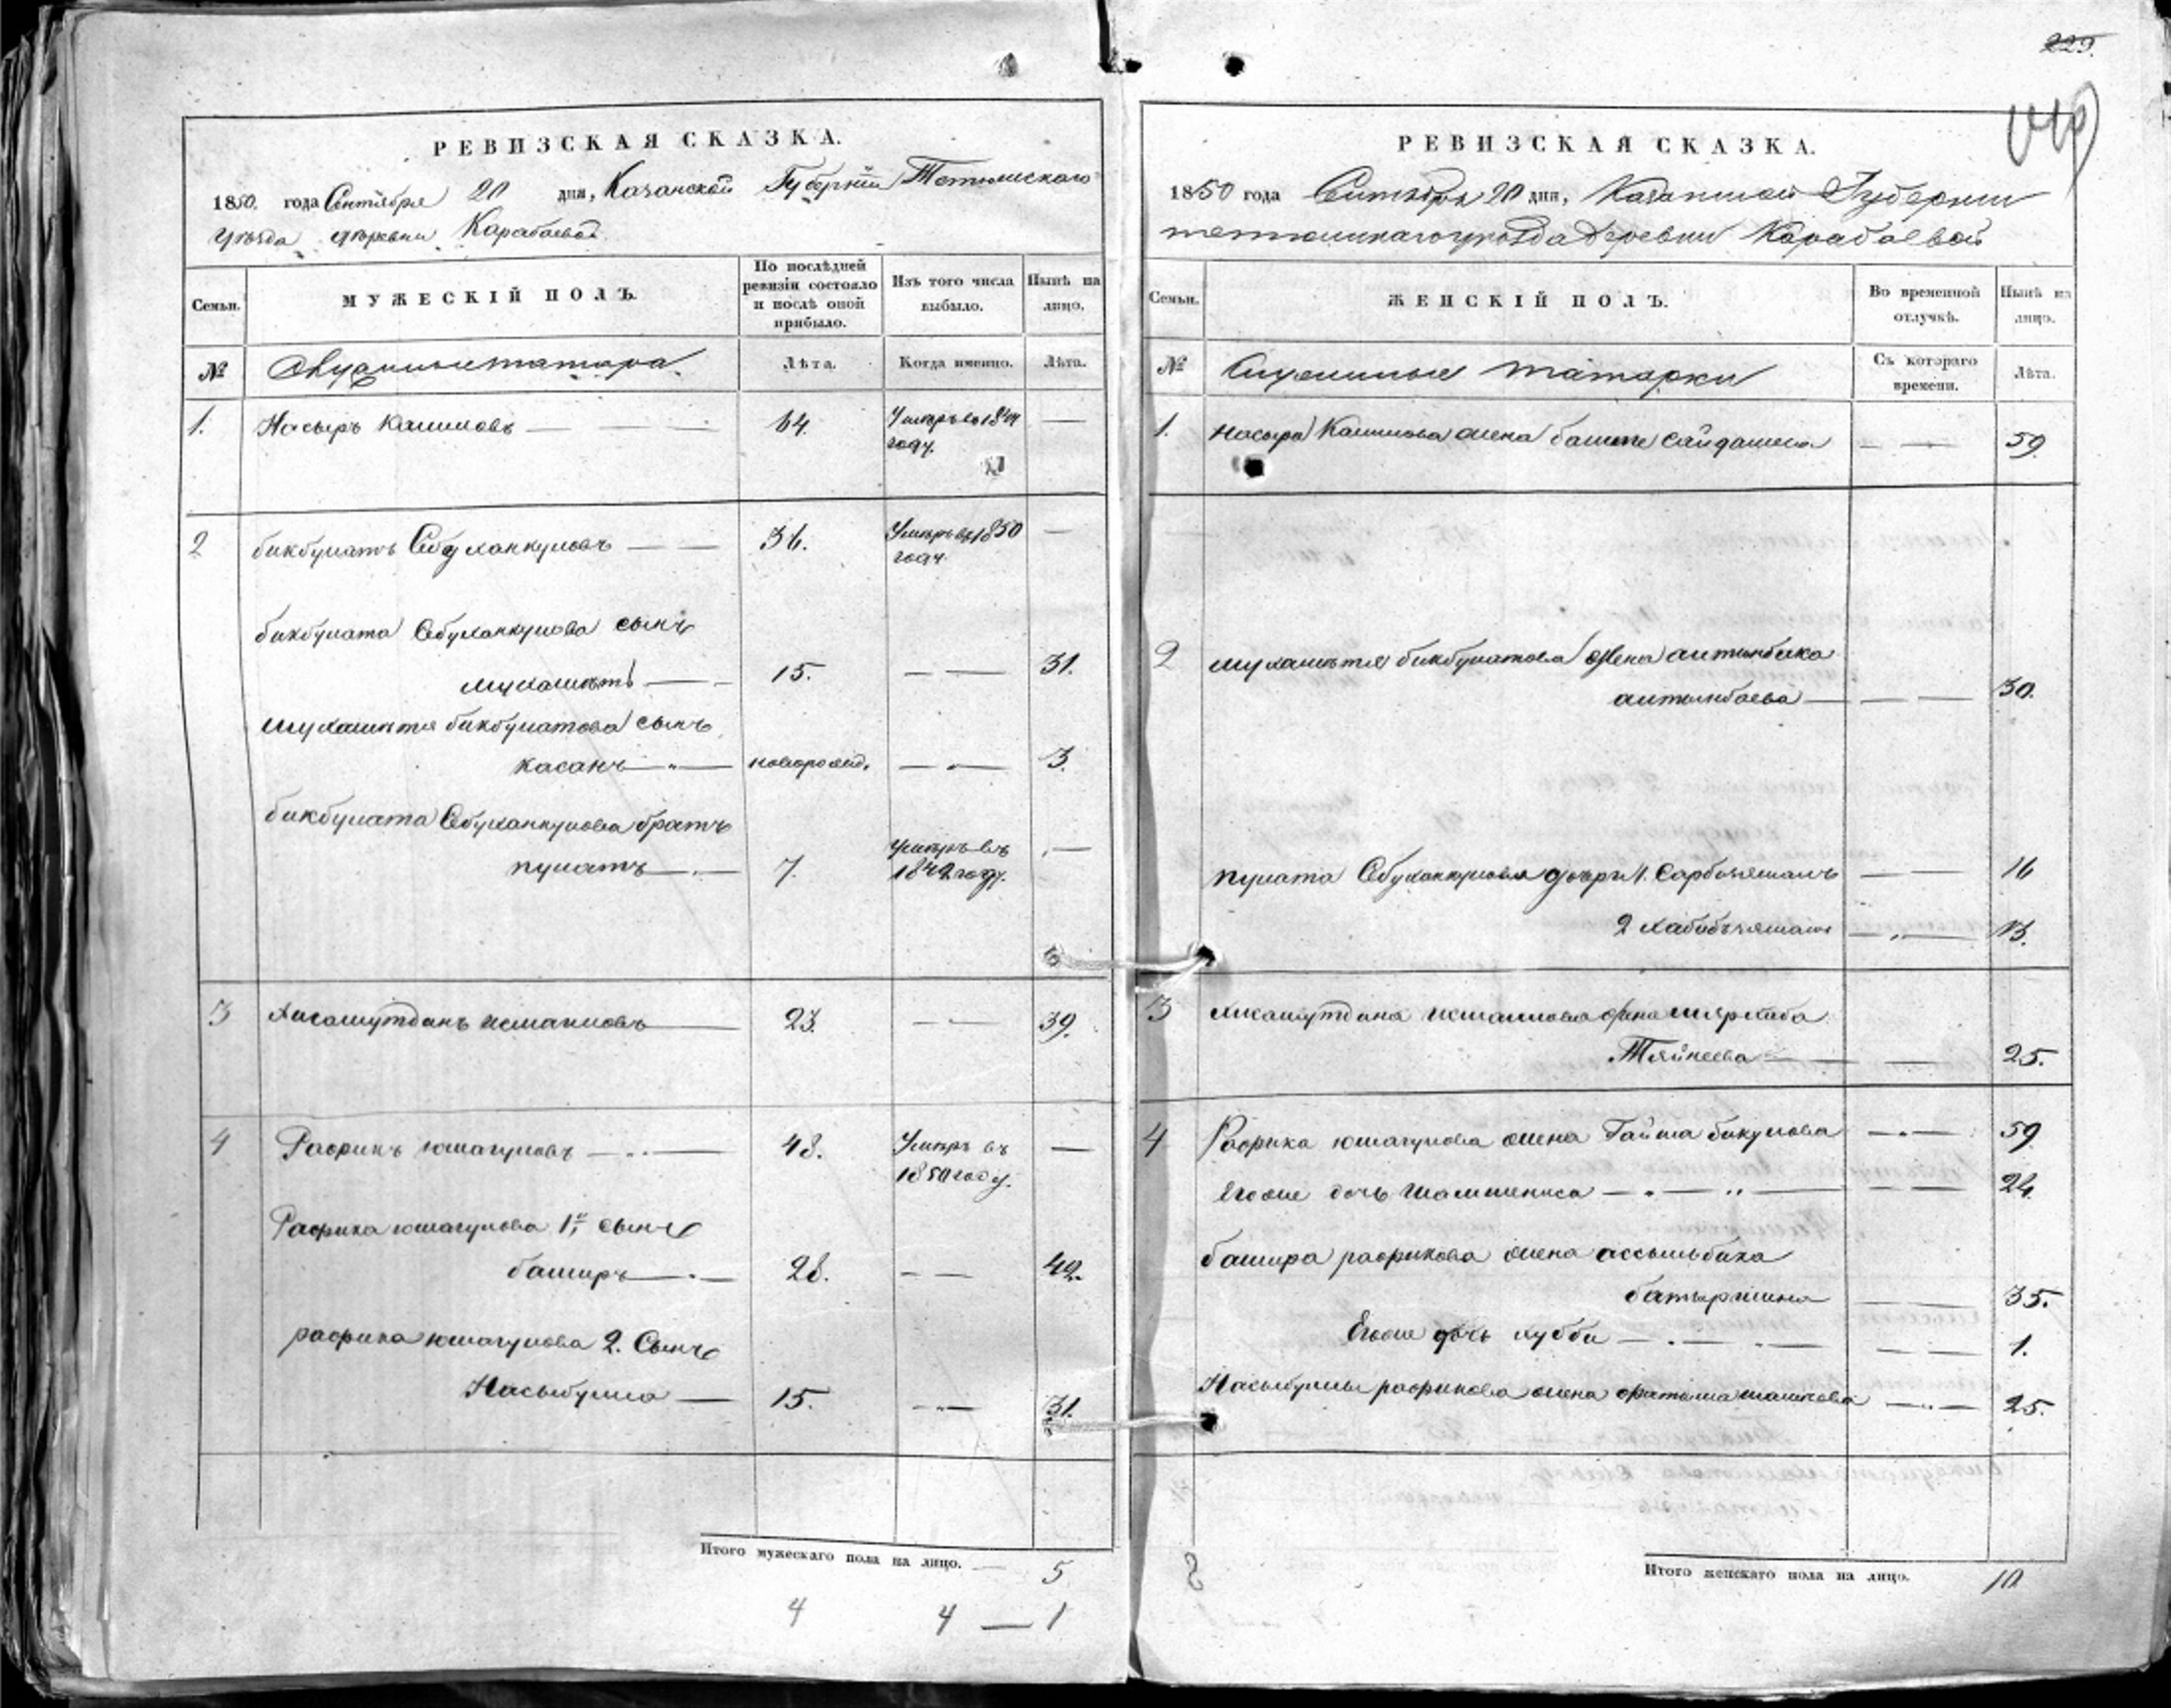 229.
РЕВИЗСКАЯ СКАЗКА.
1850. года Сентября 20 дня, Казанской Губернiи Тетюшскаго
Уѣзда деревни Карабаевой
Семьи.
МУЖЕСКІЙ ПОЛЪ.
По послѣдней ревизіи состояло и послѣ оной прибыло.
Изъ того числа выбыло.
Нынѣ на лицо.
№
татара.
Лѣта.
Когда именно.
Лѣта.
1. Насыръ Калимовъ 64. Умеръ въ 1844 —
году.
2 бикбулатъ 36. Умеръ въ 1850 —
году.
бикбулата сынъ
мухаметъ 15. — 31.
мухаметя бикбулатова сынъ
хасанъ новорожд. — 3.
бикбулата братъ
пулатъ 7. Умеръ въ —
1842 году.
3 Хисамутдинъ исмаиловъ 23. — 39.
4 Рафикъ юмагуловъ 48. Умеръ въ —
1850 году.
Рафика юмагулова 1й сынъ
баширъ 28. — 42.
рафика юмагулова 2. Сынъ
Насыбулла 15. — 31.
Итого мужескаго пола на лицо. — 5
4 4 — 1
РЕВИЗСКАЯ СКАЗКА.
1850 года Сентября 20 дня, Казанской Губернии
тетюшскаго уезда деревни Карабаевой
Семьи.
ЖЕНСКІЙ ПОЛЪ.
Во временной отлучкѣ.
Нынѣ на лицо.
№
Служилые татарки
Съ котораго времени.
Лѣта.
1. Насыра Калимова жена сайдашева — 59.
2 мухаметя бикбулатова жена алтынбика
алтынбаева — 30.
пулата дочери 1. — 16
2 — 13.
3 хисамутдина исмаилова жена
Тяйнеева — 25.
4 Рафика юмагулова жена бикулова — 59
Егоже дочь — 24.
башира рафикова жена
батыршина — 35.
Егоже дочь хубби — 1.
Насыбуллы рафикова жена фатыма — 25.
Итого женскаго пола на лицо. 10